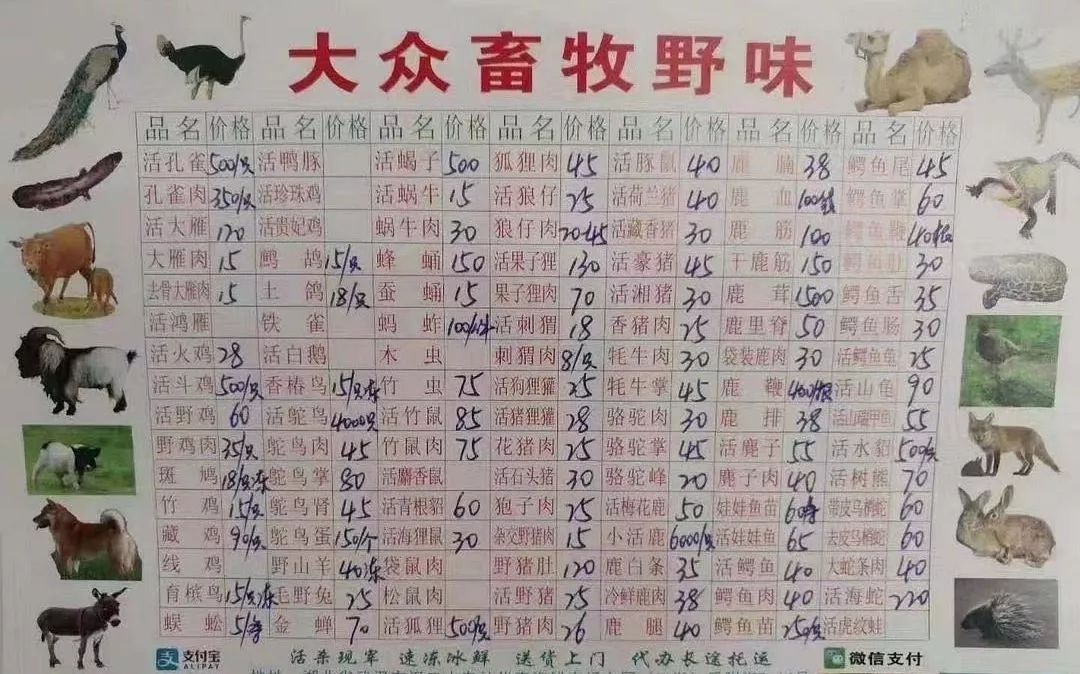 大众畜牧野味
品名 价格 品名 价格 品名 价格 品名 价格 品名 价格 品名 价格 品名 价格
活孔雀 500/只 活鸭豚 活蝎子 500 狐狸肉 45 活豚鼠 40 鹿腩 38 鳄鱼尾 45
孔雀肉 350/只 活珍珠鸡 活蜗牛 15 活狼仔 25 活荷兰猪 40 鹿血 鳄鱼掌 60
活大雁 120 活贵妃鸡 蜗牛肉 30 狼仔肉 20-45 活藏香猪 30 鹿筋 100 鳄鱼鞭
大雁肉 15 鹧鸪 15/只 蜂蛹 150 活果子狸 130 活豪猪 45 干鹿筋 150 鳄鱼肚 30
去骨大雁肉 15 土鸽 18/只 蚕蛹 15 果子狸肉 70 活湘猪 30 鹿茸 1500 鳄鱼舌 35
活鸿雁 铁雀 蚂蚱 活刺猬 18 香猪肉 25 鹿里脊 50 鳄鱼肠 30
活火鸡 28 活白鹅 木虫 刺猬肉 8/只 牦牛肉 30 袋装鹿肉 30 活鳄鱼龟 25
活斗鸡 500/只 香椿鸟 15/只冻 竹虫 75 活狗狸獾 25 牦牛掌 45 鹿鞭 活山龟 90
活野鸡 60 活鸵鸟 4000只 活竹鼠 85 活猪狸獾 28 骆驼肉 30 鹿排 38 活山瑞甲鱼 55
野鸡肉 35/只 鸵鸟肉 45 竹鼠肉 75 花猪肉 25 骆驼掌 45 活麂子 55 活水貂 500/只
斑鸠 18/只冻 鸵鸟掌 80 活麝香鼠 活石头猪 30 骆驼峰 20 麂子肉 40 活树熊 70
竹鸡 15/只 鸵鸟肾 45 活青根貂 60 狍子肉 25 活梅花鹿 50 娃娃鱼苗 带皮马骝蛇 60
藏鸡 90/只 鸵鸟蛋 150/个 活海狸鼠 30 杂交野猪肉 15 小活鹿 6000/只 活娃娃鱼 65 去皮马骝蛇 60
线鸡 野山羊 40冻 袋鼠肉 野猪肚 120 鹿白条 35 活鳄鱼 40 大蛇条肉 40
育槟鸟 15/只冻 毛野兔 25 松鼠肉 活野猪 25 冷鲜鹿肉 38 鳄鱼肉 40 活海蛇 220
蜈蚣 金蝉 70 活狐狸 500/只 野猪肉 26 鹿腿 40 鳄鱼苗 250/只 活虎纹蛙
支付宝 ALIPAY 活杀现宰 速冻冰鲜 送货上门 代办长途托运 微信支付